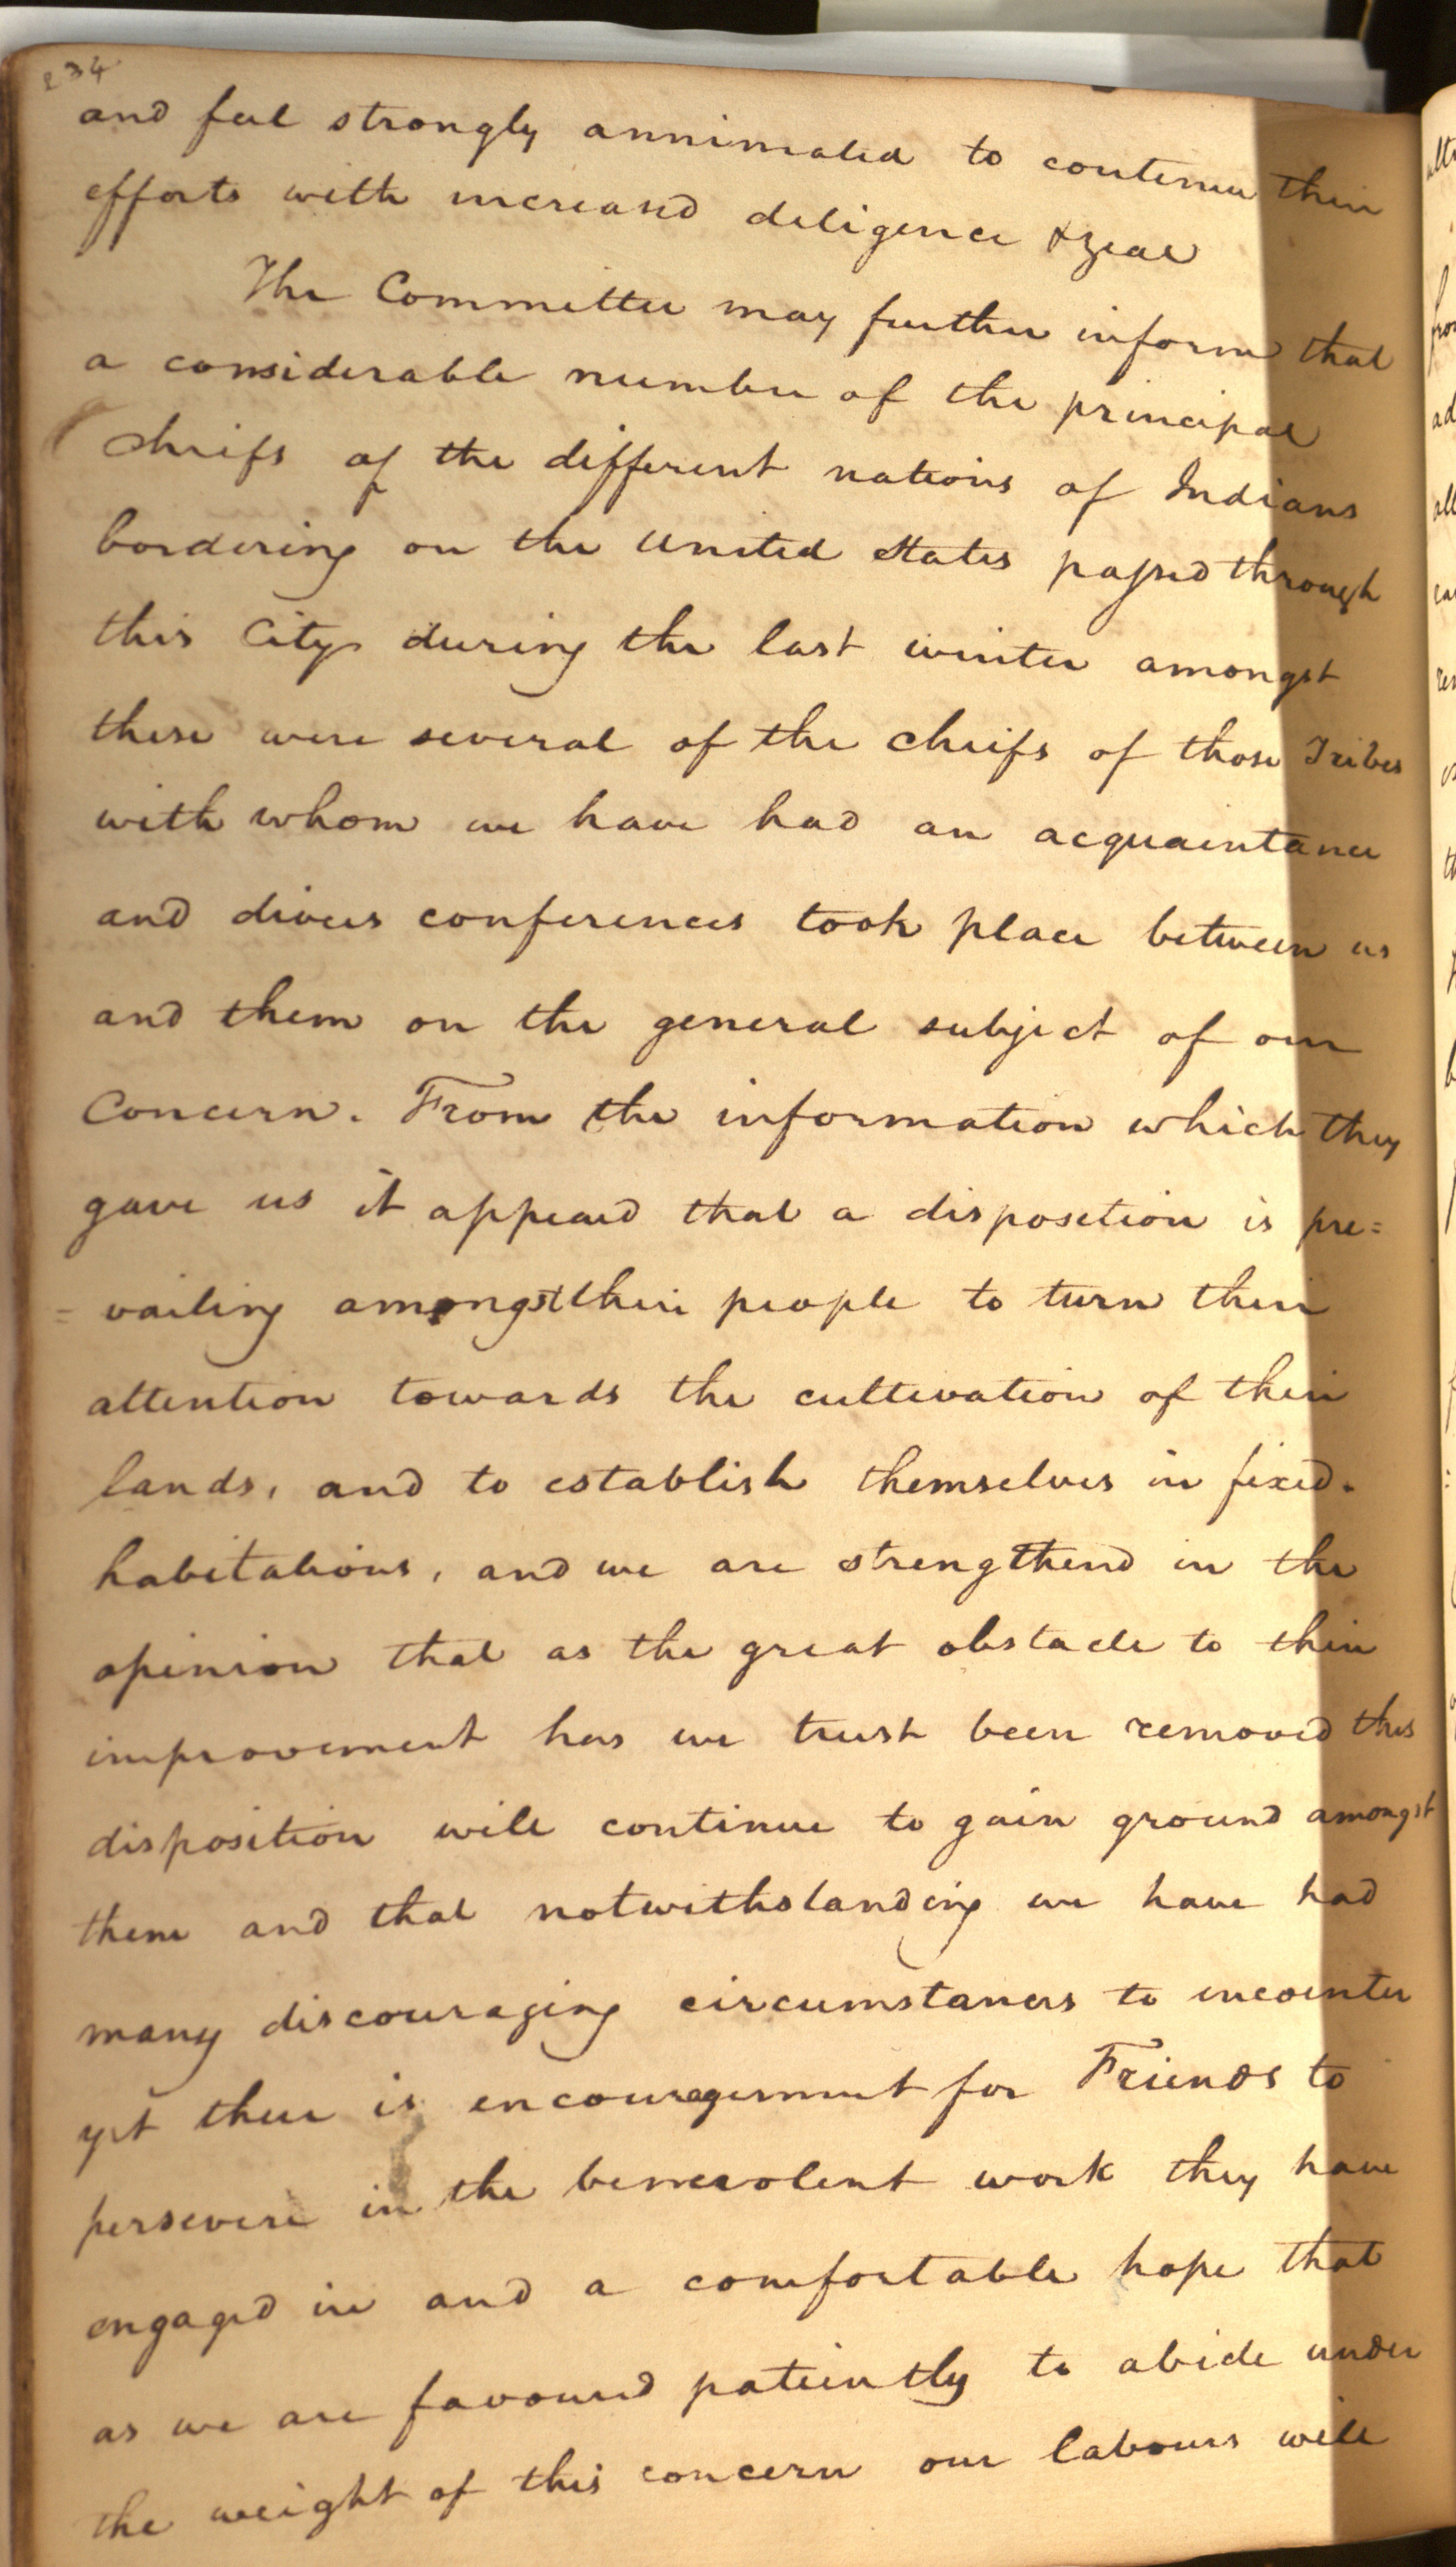 234
and feel strongly annimated to continue their
efforts with increased deligence & zeal
The Committee may further inform that
a considerable number of the principal
chiefs of the different nations of Indians
bordering on the United States passed through
this City during the last winter amongst
these were several of the cheifs of those Tribes
with whom we have had an acquaintance
and divers conferences took place between us
and them on the general subject of our
Concern. From the information which they
gave us it appeared that a disposition is pre=
=vailing amongst their people to turn their
attention towards the cultivation of their
lands, and to establish themselves in fixed.
habitations, and we are strengthend in the
opinion that as the great obstacle to their
improvement has we trust been removed this
disposition will continue to gain ground amongst
them and that notwithstanding we have had
many discouraging circumstances to encounter
yet there is encouragement for Friends to
persevere in the benevolent work they have
engaged in and a comfortable hope that
as we are favoured patiently to abide under
the weight of this concern our labours will